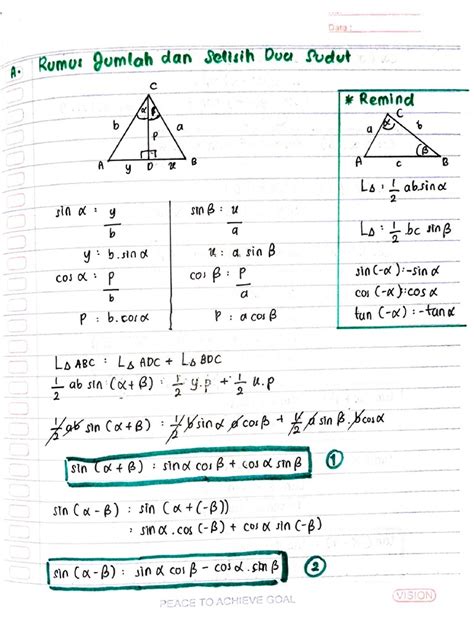 Date :
A. Rumus Jumlah dan Selisih Dua Sudut
C
α β
b a
P
A y D u B
* Remind
C
a α b
β
A c B
L△ : 1/2 ab sin α
L△ : 1/2 bc sin β
sin (-α) : -sin α
cos (-α) : cos α
tan (-α) : -tan α
sin α : y/b
y : b . sin α
cos α : P/b
P : b . cos α
sin β : u/a
u : a sin β
cos β : P/a
P : a cos β
L△ ABC : L△ ADC + L△ BDC
1/2 ab sin (α + β) : 1/2 y.p + 1/2 u.p
1/2 ab sin (α + β) : 1/2 b sin α a cos β + 1/2 a sin β . b cos α
sin (α + β) : sin α cos β + cos α sin β 1
sin (α - β) : sin (α + (-β))
: sin α . cos (-β) + cos α sin (-β)
sin (α - β) : sin α cos β - cos α . sin β 2
PEACE TO ACHIEVE GOAL
VISION